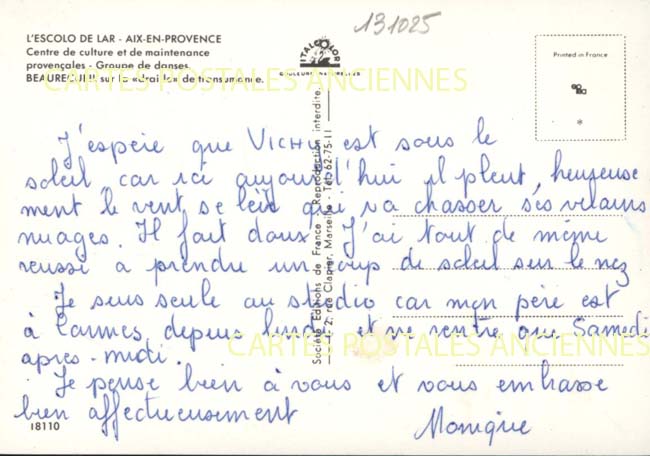 131025
L'ESCOLO DE LAR - AIX-EN-PROVENCE
Centre de culture et de maintenance
provençales - Groupe de danses.
BEAURECUEIL sur la «draille» de transumance.
ITALCOLOR
COULEURS NATURELLES
Printed in France
*
CARTES POSTALES ANCIENNES
J'espère que VICHY est sous le
soleil car ici aujourd'hui il pleut, heureuse
ment le vent se lève qui va chasser ses vilains
nuages. Il fait doux. J'ai tout de même
réussi à prendre un coup de soleil sur le nez
Je suis seule au studio car mon père est
à Cannes depuis lundi et ne rentre que Samedi
après-midi.
Je pense bien à vous et vous embrasse
bien affectueusement
Monique
CARTES POSTALES ANCIENNES
Société Editions de France - Reproduction interdite
2, rue Clapier, Marseille - Tél. 62-75-11
18110